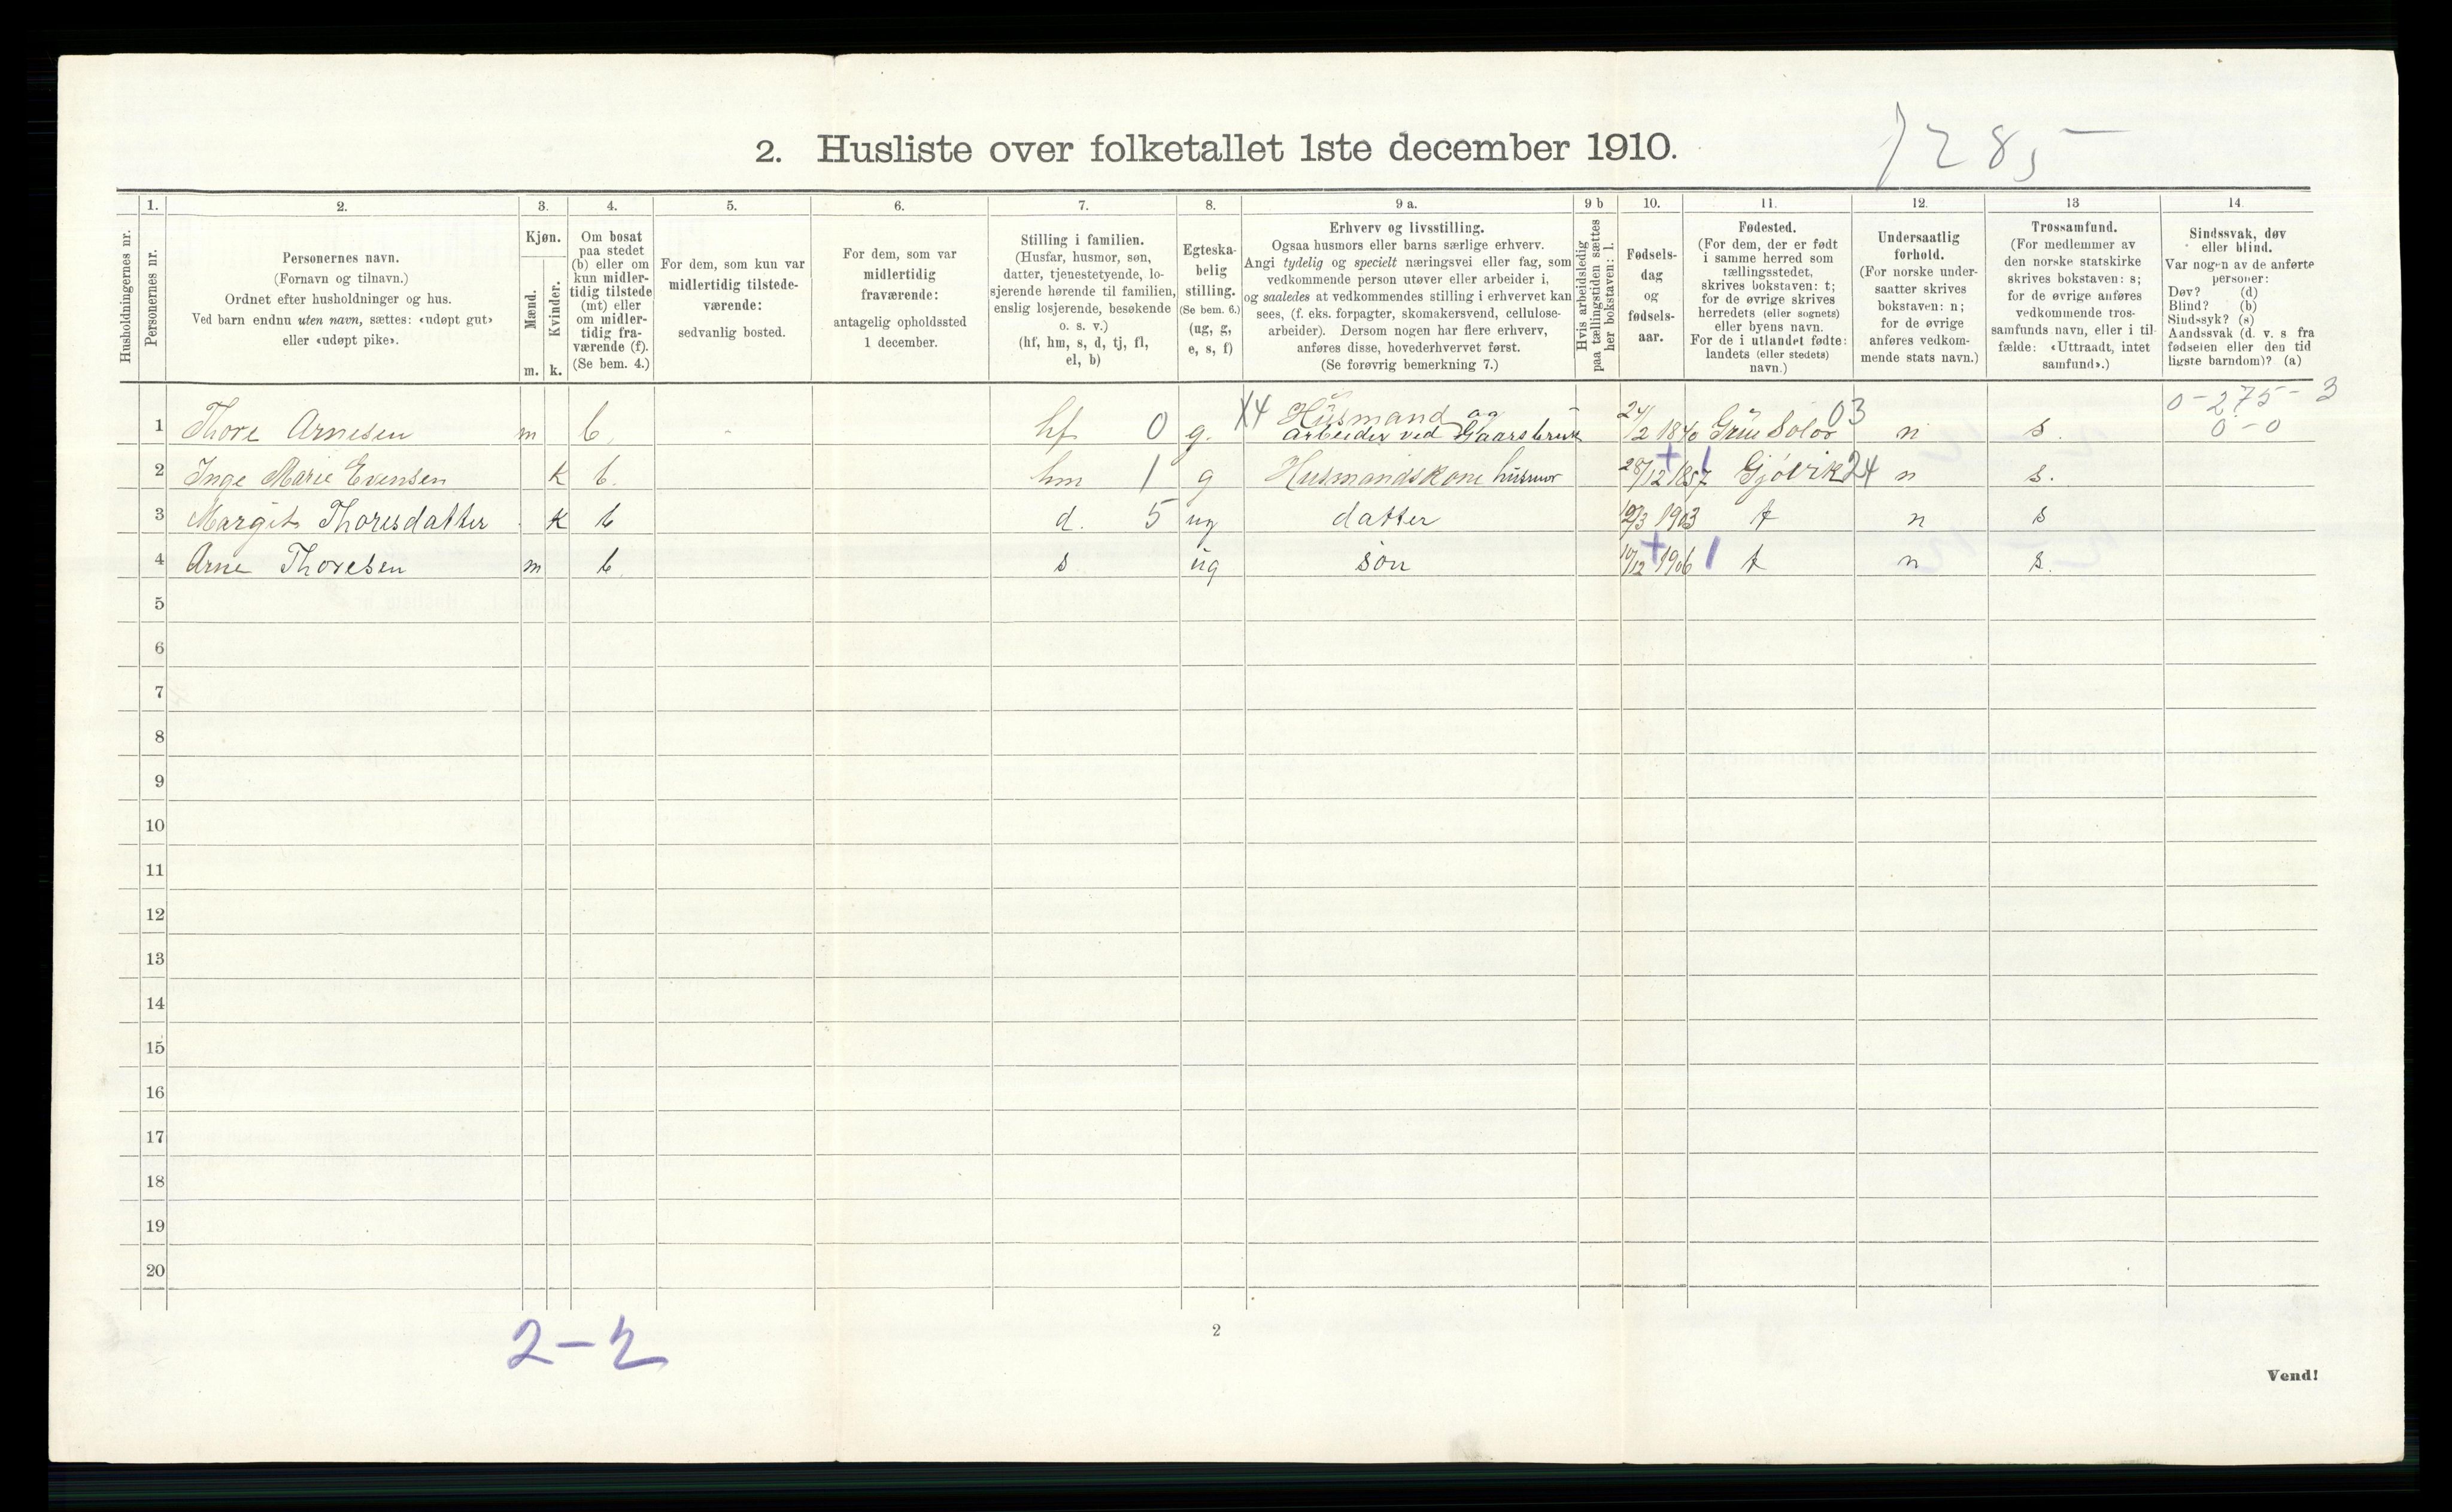 2. Husliste over folketallet 1ste december 1910.
1. 2. 3. 4. 5. 6. 7. 8. 9 a. 9 b 10. 11. 12. 13 14.
Husholdningernes nr.
Personernes nr.
Personernes navn.
(Fornavn og tilnavn.)
Ordnet efter husholdninger og hus.
Ved barn endnu uten navn, sættes: «udøpt gut»
eller «udøpt pike».
Kjøn.
Mænd.
Kvinder.
m. k.
Om bosat
paa stedet
(b) eller om
kun midler-
tidig tilstede
(mt) eller
om midler-
tidig fra-
værende (f).
(Se bem. 4.)
For dem, som kun var
midlertidig tilstede-
værende:
sedvanlig bosted.
For dem, som var
midlertidig
fraværende:
antagelig opholdssted
1 december.
Stilling i familien.
(Husfar, husmor, søn,
datter, tjenestetyende, lo-
sjerende hørende til familien,
enslig losjerende, besøkende
o. s. v.)
(hf, hm, s, d, tj, fl,
el, b)
Egteska-
belig
stilling.
(Se bem. 6.)
(ug, g,
e, s, f)
Erhverv og livsstilling.
Ogsaa husmors eller barns særlige erhverv.
Angi tydelig og specielt næringsvei eller fag, som
vedkommende person utøver eller arbeider i,
og saaledes at vedkommendes stilling i erhvervet kan
sees, (f. eks. forpagter, skomakersvend, cellulose-
arbeider). Dersom nogen har flere erhverv,
anføres disse, hovederhvervet først.
(Se forøvrig bemerkning 7.)
Hvis arbeidsledig
paa tællingstiden sættes
her bokstaven: l.
Fødsels-
dag
og
fødsels-
aar.
Fødested.
(For dem, der er født
i samme herred som
tællingsstedet,
skrives bokstaven: t;
for de øvrige skrives
herredets (eller sognets)
eller byens navn.
For de i utlandet fødte:
landets (eller stedets)
navn.)
Undersaatlig
forhold.
(For norske under-
saatter skrives
bokstaven: n;
for de øvrige
anføres vedkom-
mende stats navn.)
Trossamfund.
(For medlemmer av
den norske statskirke
skrives bokstaven: s;
for de øvrige anføres
vedkommende tros-
samfunds navn, eller i til-
fælde: «Uttraadt, intet
samfund».)
Sindssvak, døv
eller blind.
Var nogen av de anførte
personer:
Døv? (d)
Blind? (b)
Sindssyk? (s)
Aandssvak (d. v. s fra
fødselen eller den tid-
ligste barndom)? (a)
X4 Husmand og 03 0-275-3
1 Thore Arnesen m b hf 0 g. Arbeider ved Gaarsbruk 24/2 1840 Grue Solør n s. 0-0
2 Inge Marie Evensen k b. hm 1 g Husmandskone husmor 28/12 1857 Gjøvik 24 n s.
3 Margit Thoresdatter k b d. 5 ug datter 1903 t n s
4 Arne Thoresen m b s ug søn 1906 t n s.
5
6
7
8
9
10
11
12
13
14
15
16
17
18
19
20
2-2
2
Vend!